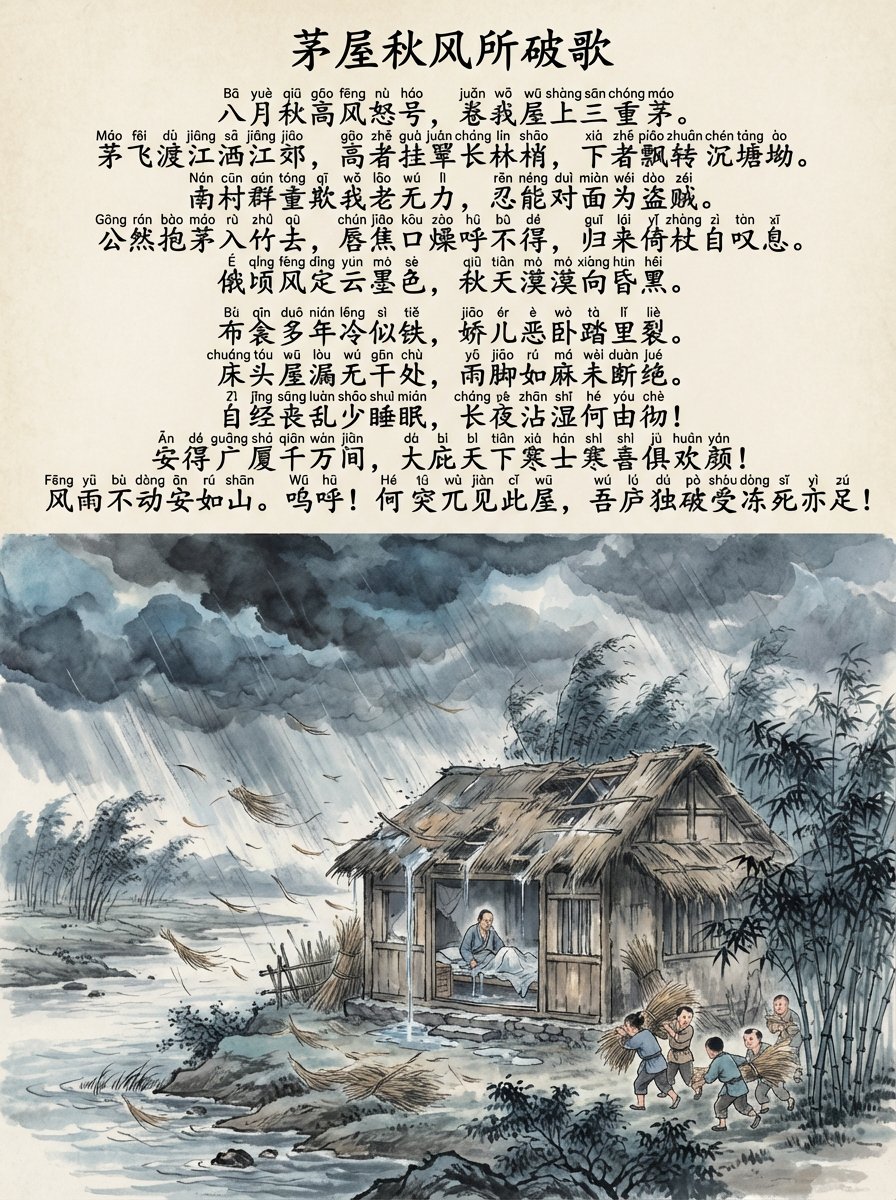 茅屋秋风所破歌
Bā yuè qiū gāo fēng nù háo juǎn wǒ wū shàng sān chóng máo
八月秋高风怒号，卷我屋上三重茅。
Máo fēi dù jiāng sǎ jiāng jiāo gāo zhě guà juàn cháng lín shāo xià zhě piāo zhuǎn chén táng ào
茅飞渡江洒江郊，高者挂罩长林梢，下者飘转沉塘坳。
Nán cūn qún tóng qī wǒ lǎo wú lì rěn néng duì miàn wéi dào zéi
南村群童欺我老无力，忍能对面为盗贼。
Gōng rán bào máo rù zhú qù chún jiāo kǒu zào hū bù dé guī lái yǐ zhàng zì tàn xī
公然抱茅入竹去，唇焦口燥呼不得，归来倚杖自叹息。
É qǐng fēng dìng yún mò sè qiū tiān mò mò xiàng hūn hēi
俄顷风定云墨色，秋天漠漠向昏黑。
Bù qīn duō nián lěng sì tiě jiāo ér è wò tà lǐ liè
布衾多年冷似铁，娇儿恶卧踏里裂。
chuáng tóu wū lòu wú gān chù yǔ jiǎo rú má wèi duàn jué
床头屋漏无干处，雨脚如麻未断绝。
Zì jīng sāng luàn shǎo shuì mián cháng yè zhān shī hé yóu chè
自经丧乱少睡眠，长夜沾湿何由彻！
Ān dé guǎng shà qiān wàn jiān dà bì tiān xià hán shì shì jù huān yán
安得广厦千万间，大庇天下寒士寒喜俱欢颜！
Fēng yǔ bù dòng ān rú shān Wū hū Hé wù jiàn cǐ wū wú lú dú pò shòu dòng sǐ yì zú
风雨不动安如山。呜呼！何突兀见此屋，吾庐独破受冻死亦足！